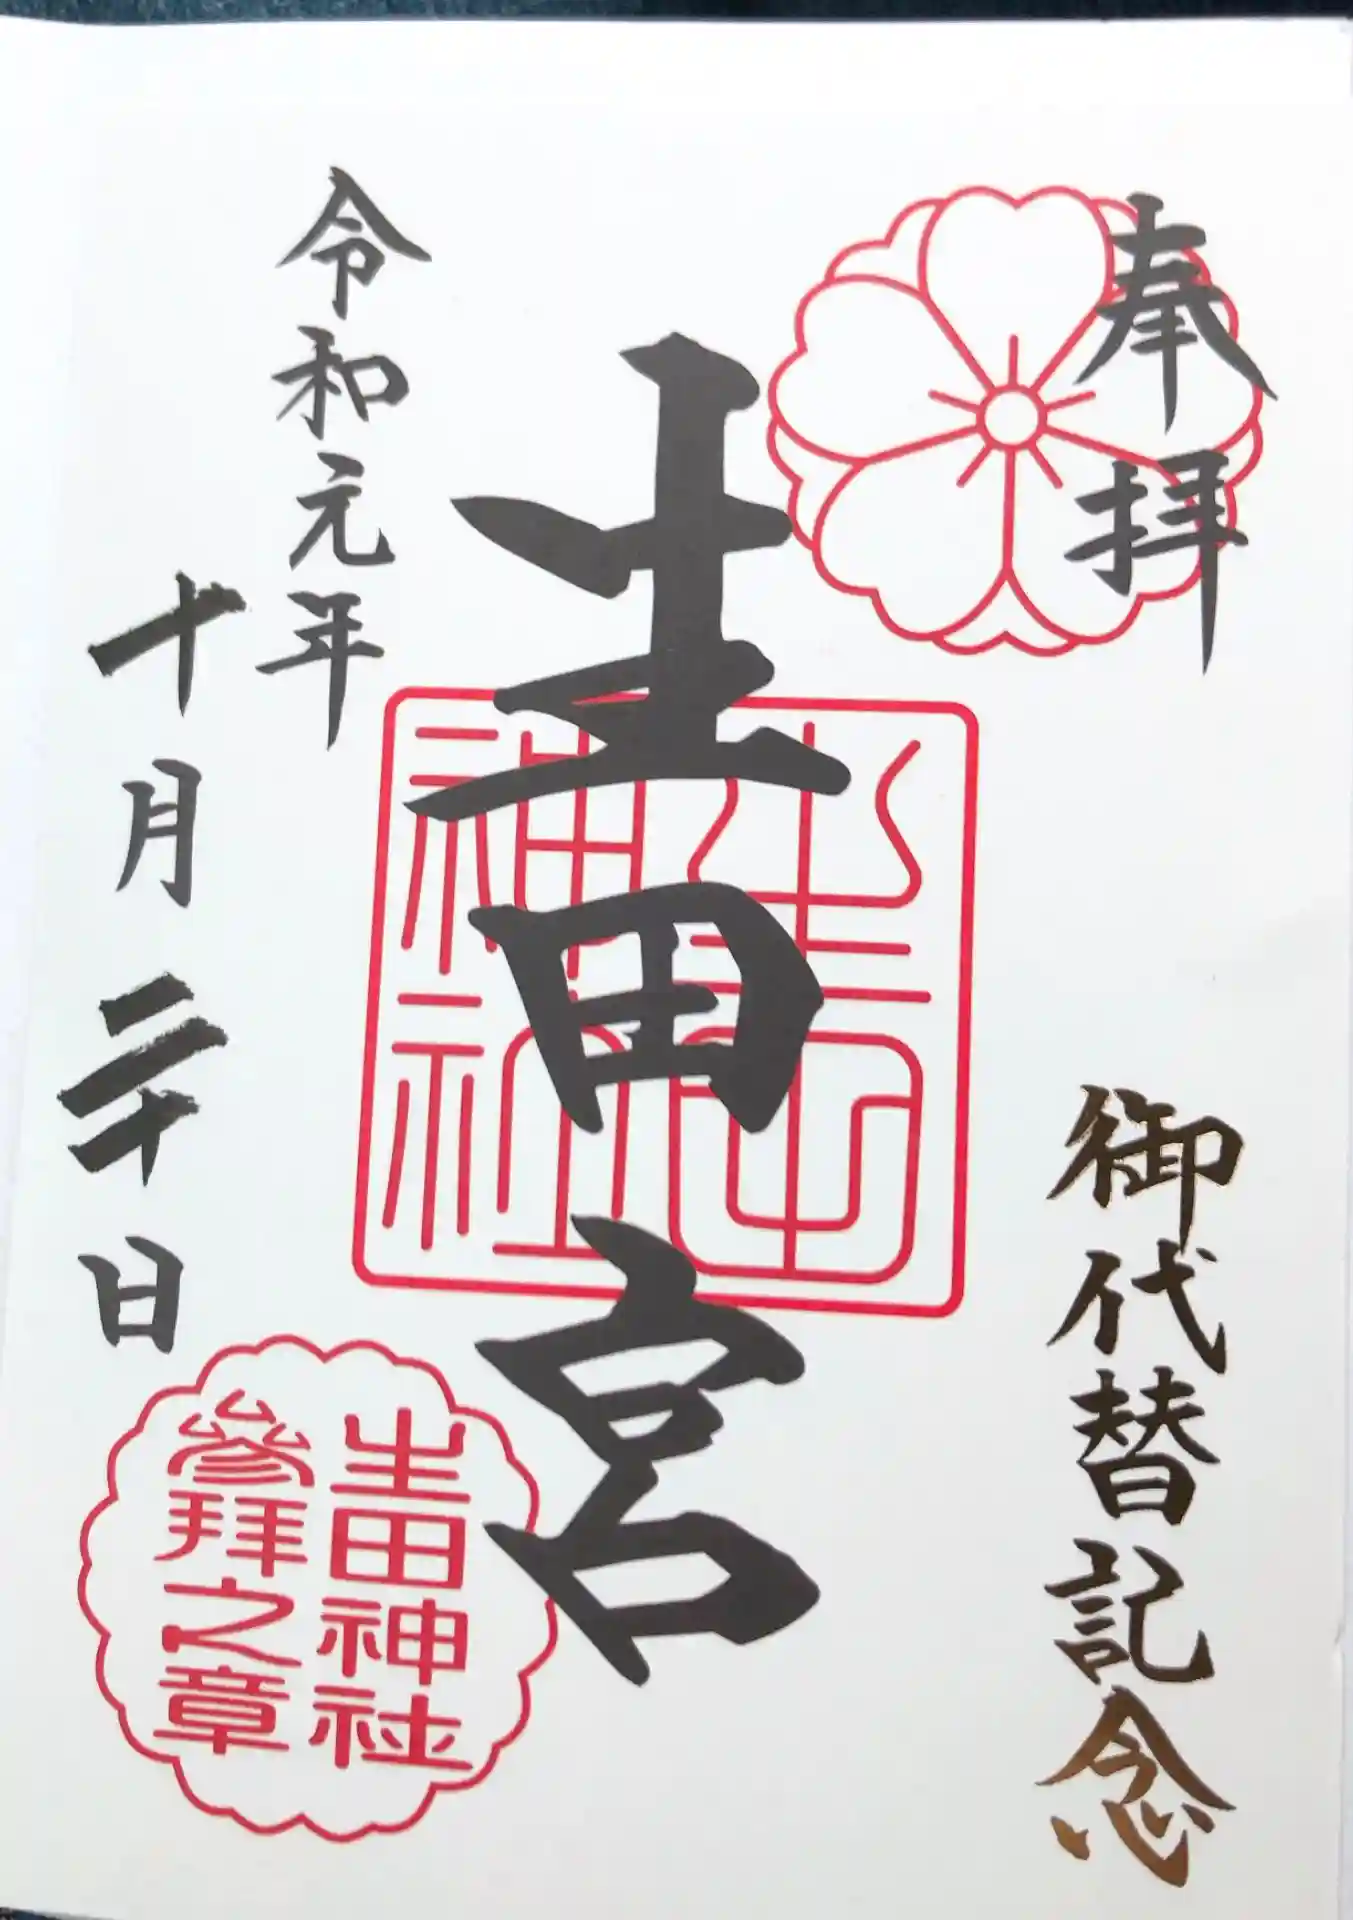 奉拝
御代替記念
生田宮
生田神社
令和元年
十月二十日
生田神社
参拝之章